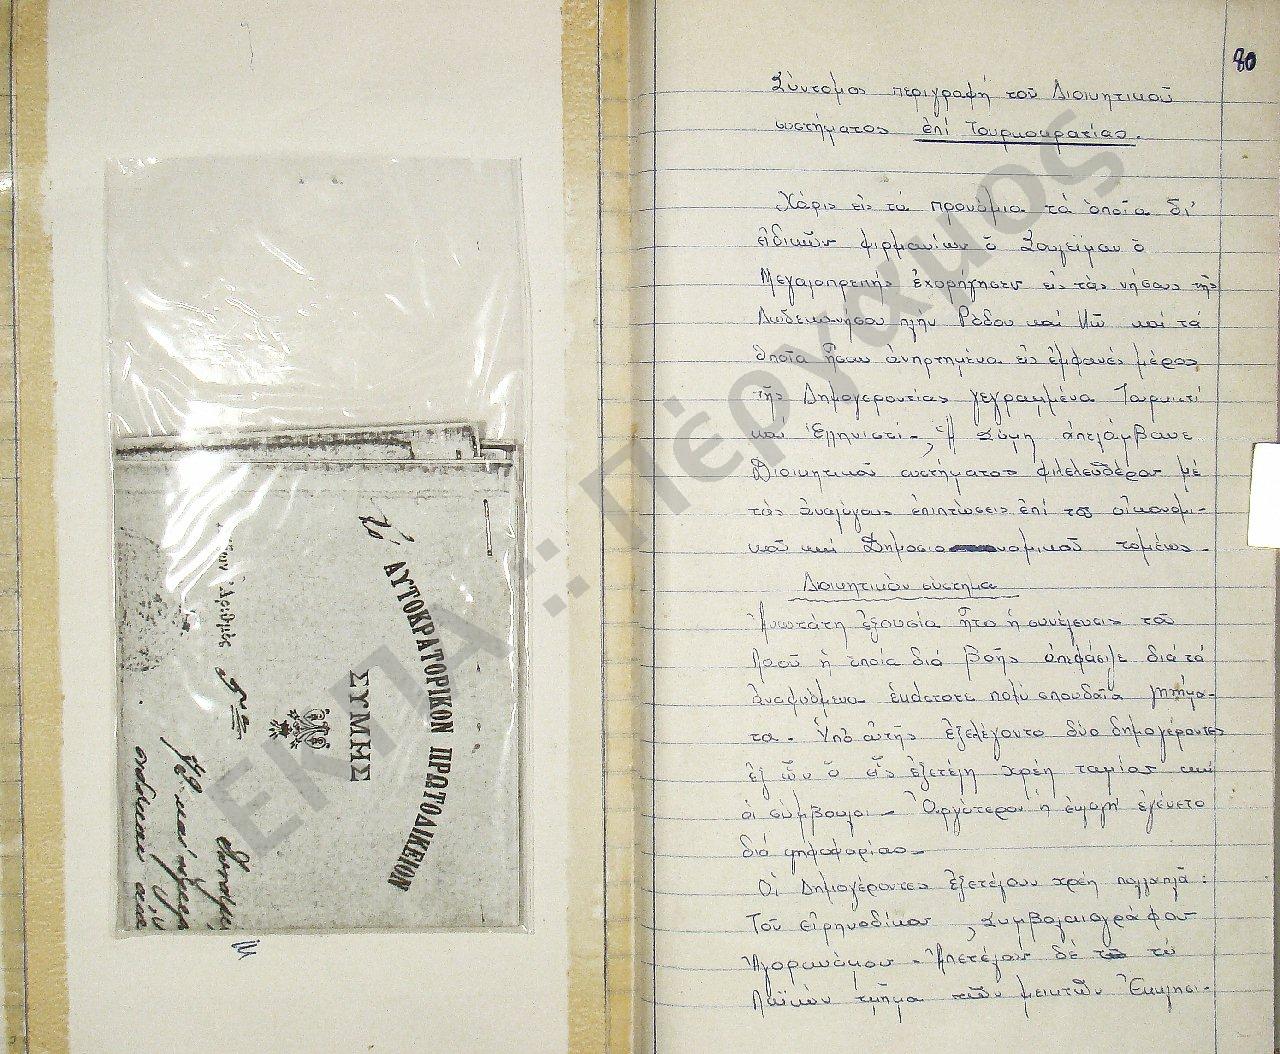 80
Σύντομος περιγραφή τοῦ Διοικητικοῦ
συστήματος ἐπί Τουρκοκρατίας.
Χάρις εἰς τά προνόμια τά ὁποῖα δι'
εἰδικῶν φιρμανίων ὁ Σουλεϊμάν ὁ
Μεγαλοπρεπής ἐχορήγησεν εἰς τάς νήσους τῆς
Δωδεκανήσου πλήν Ρόδου καί Κῶ καί τά
ὁποῖα ἦσαν ἀνηρτημένα εἰς ἐμφανές μέρος
τῆς Δημογεροντίας γεγραμμένα Τουρκιστί
καί Ἑλληνιστί -, ἡ Σύμη ἀπελάμβανε
Διοικητικοῦ συστήματος φιλελευθέρου μέ
τάς ἀναλόγους ἐπιπτώσεις ἐπί τοῦ οἰκονομι-
κοῦ καί Δημοσιο νομικοῦ τομέως -
Διοικητικόν σύστημα
Ἀνωτάτη ἐξουσία ἦτο ἡ συνέλευσις τοῦ
Λαοῦ ἡ ὁποία διά βοῆς ἀπεφάσιζε διά τά
ἀναφυόμενα ἑκάστοτε πολύ σπουδαῖα ζητήμα-
τα - Ὑπό αὐτῆς ἐξελέγοντο δύο δημογέροντες
ἐξ ὧν ὁ εἷς ἐξετέλη χρέη ταμίου καί
οἱ σύμβουλοι - Ἀργότερον ἡ ἐκλογή ἐγένετο
διά ψηφοφορίας -
Οἱ Δημογέροντες ἐξετέλουν χρέη πολλαπλᾶ:
Τοῦ εἰρηνοδίκου, Συμβολαιογράφου
Ἀγορανόμου - Ἀπετέλουν δέ τό
Λαϊκόν τμῆμα τῶν μεικτῶν Ἐκκλησι-
ΑΥΤΟΚΡΑΤΟΡΙΚΟΝ ΠΡΩΤΟΔΙΚΕΙΟΝ
ΣΥΜΗΣ
Ἀριθμός
ΕΚΠΑ :: Πέργαμος